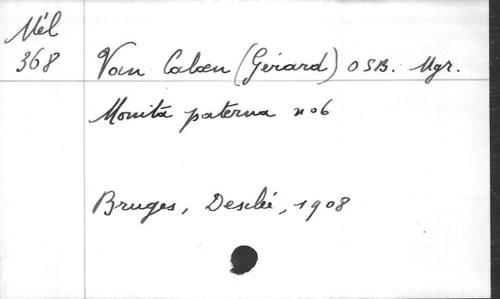 Mél
368
Van Caloen (Gérard) OSB. Mgr.
Monita paterna no6
Bruges, Desclée, 1908